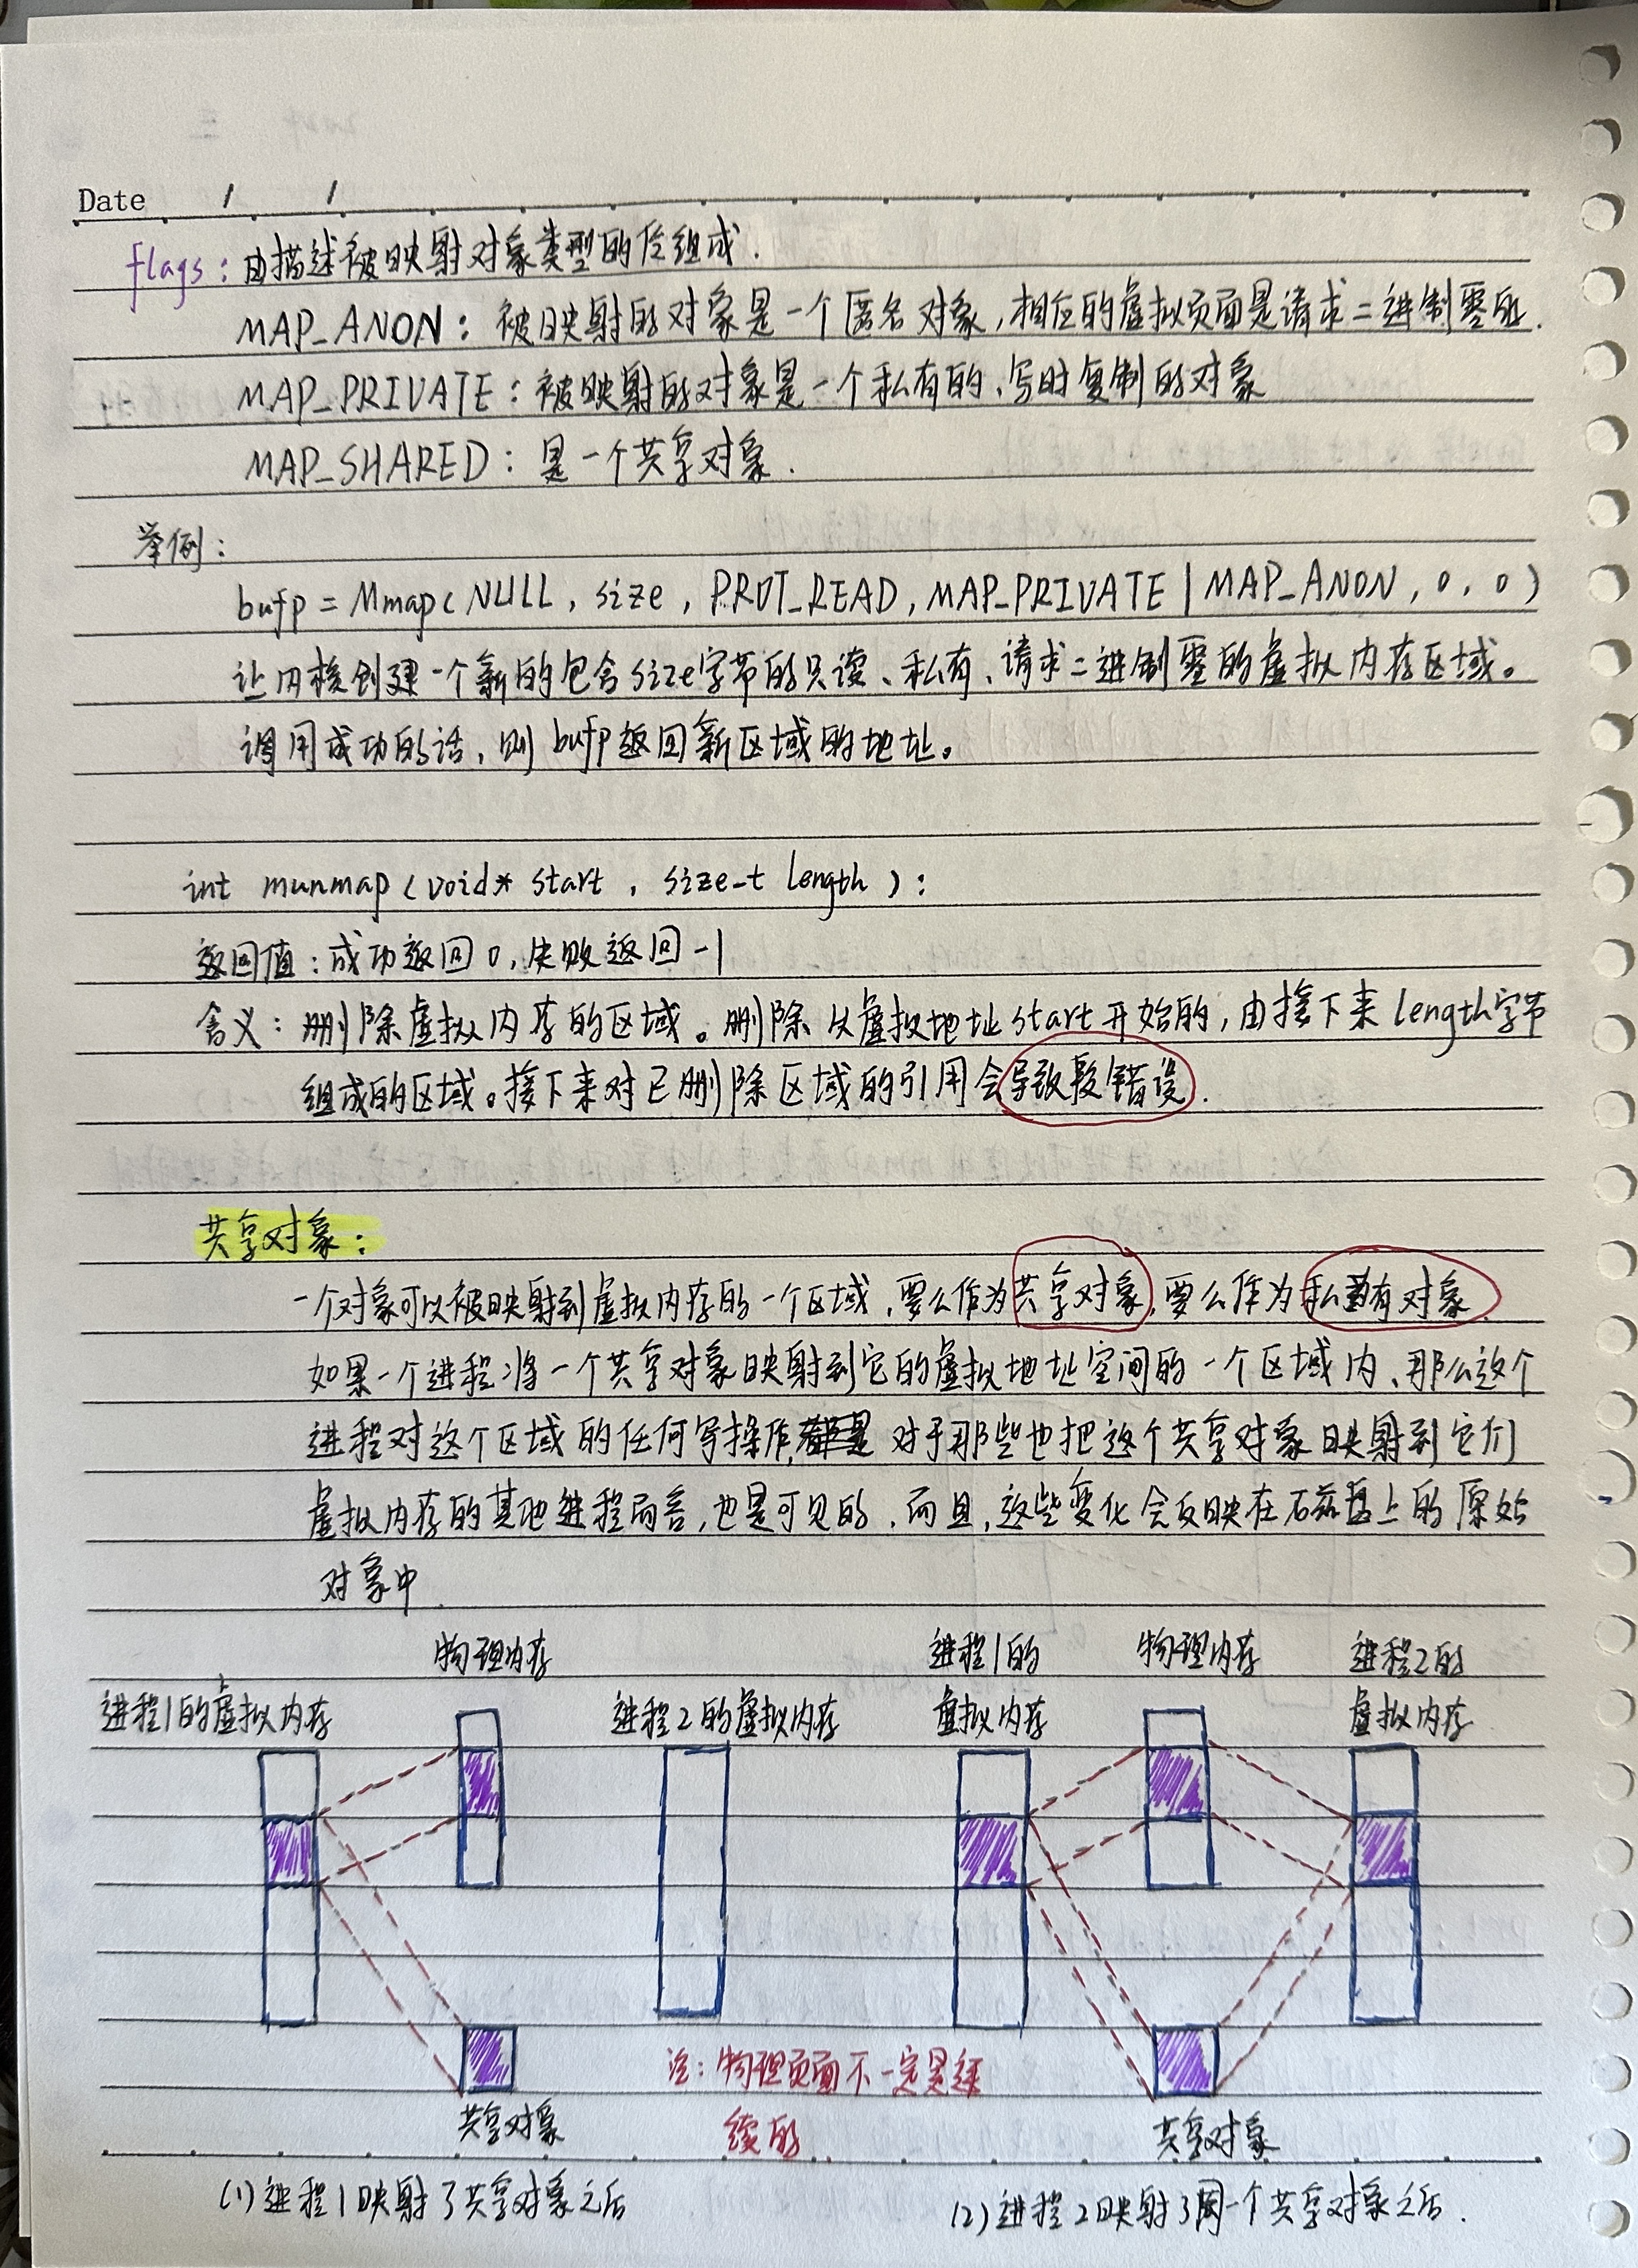 Date / /
flags：由描述被映射对象类型的位组成.
MAP_ANON：被映射的对象是一个匿名对象,相应的虚拟页面是请求二进制零的.
MAP_PRIVATE：被映射的对象是一个私有的、写时复制的对象
MAP_SHARED：是一个共享对象.
举例：
bufp = Mmap(NULL, size, PROT_READ, MAP_PRIVATE | MAP_ANON, 0, 0)
让内核创建一个新的包含size字节的只读、私有、请求二进制零的虚拟内存区域。
调用成功的话,则bufp返回新区域的地址。
int munmap(void* start, size_t length):
返回值：成功返回0,失败返回-1
含义：删除虚拟内存的区域。删除从虚拟地址start开始的,由接下来length字节
组成的区域。接下来对已删除区域的引用会导致段错误.
共享对象：
一个对象可以被映射到虚拟内存的一个区域,要么作为共享对象,要么作为私有对象.
如果一个进程将一个共享对象映射到它的虚拟地址空间的一个区域内,那么这个
进程对这个区域的任何写操作,对于那些也把这个共享对象映射到它们
虚拟内存的其他进程而言,也是可见的.而且,这些变化会反映在磁盘上的原始
对象中.
物理内存 进程1的 物理内存 进程2的
进程1的虚拟内存 进程2的虚拟内存 虚拟内存 虚拟内存
注：物理页面不一定是连
续的.
共享对象 共享对象
(1)进程1映射了共享对象之后 (2)进程2映射了同一个共享对象之后.